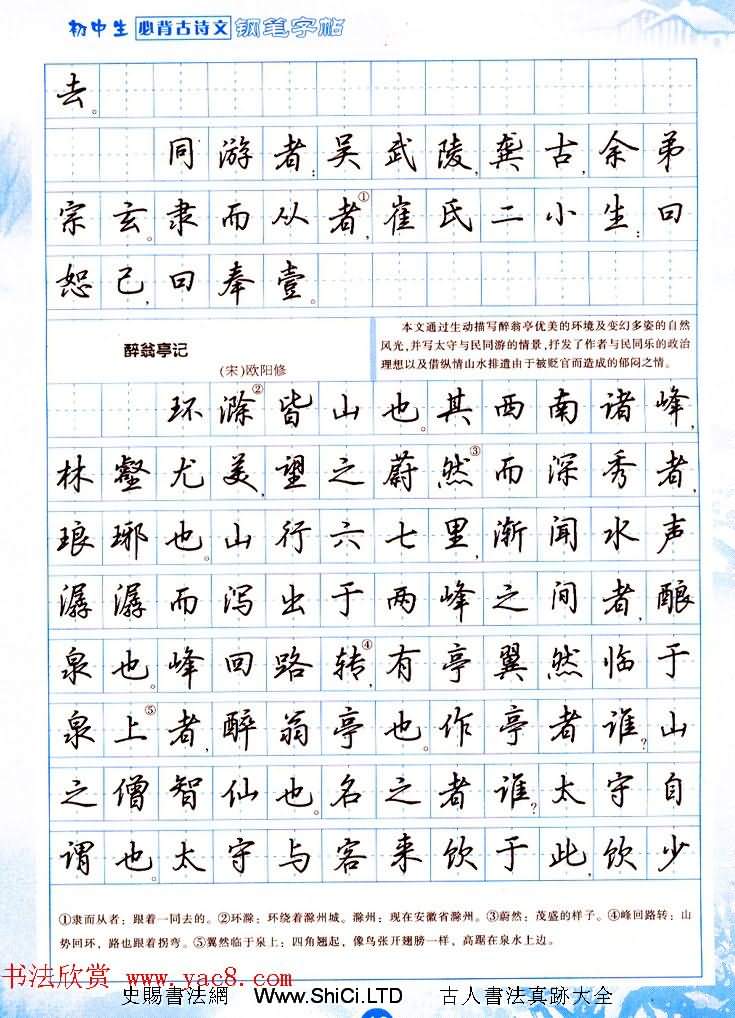 初中生 必背古诗文 钢笔字帖
去。
同游者：吴武陵，龚古，余弟
宗玄。隶而从者①，崔氏二小生：曰
恕己，曰奉壹。
醉翁亭记
(宋)欧阳修
本文通过生动描写醉翁亭优美的环境及变幻多姿的自然
风光，并写太守与民同游的情景，抒发了作者与民同乐的政治
理想以及借纵情山水排遣由于被贬官而造成的郁闷之情。
环滁②皆山也。其西南诸峰，
林壑尤美，望之蔚然③而深秀者，
琅琊也。山行六七里，渐闻水声
潺潺而泻出于两峰之间者，酿
泉也。峰回路转④，有亭翼然临于
泉上⑤者，醉翁亭也。作亭者谁？山
之僧智仙也。名之者谁？太守自
谓也。太守与客来饮于此，饮少
①隶而从者：跟着一同去的。②环滁：环绕着滁州城。滁州：现在安徽省滁州。③蔚然：茂盛的样子。④峰回路转：山
势回环，路也跟着拐弯。⑤翼然临于泉上：四角翘起，像鸟张开翅膀一样，高踞在泉水上边。
书法欣赏 www.yac8.com
史賜書法網 Www.ShiCi.LTD 古人書法真跡大全